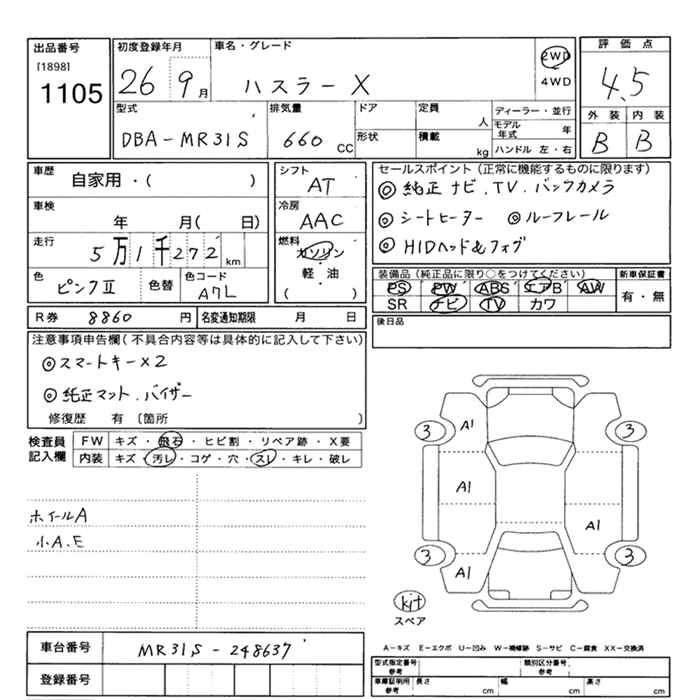 出品番号 初度登録年月 車名・グレード 評価点
[1898]
1105 26 9月 ハスラー X 2WD 4WD 4.5
型式 排気量 ドア 定員 ディーラー・並行 外装 内装
DBA-MR31S 660CC 形状 人 モデル年式 年 B B
積載 kg ハンドル 左・右
車歴 自家用・( ) シフト AT セールスポイント (正常に機能するものに限ります)
◎純正ナビ.TV.バックカメラ
車検 年 月( 日) 冷房 AAC ◎シートヒーター ◎ルーフレール
走行 5万1千272km 燃料 ガソリン ◎HIDヘッド&フォグ
軽・油
( )
色 ピンクⅡ 色替 色コード A7L 装備品 (純正品に限り○をつけてください) 新車保証書
PS PW ABS エアB AW 有・無
SR ナビ TV カワ
R券 8860円 名変通知期限 月 日 後日品
注意事項申告欄 (不具合内容等は具体的に記入して下さい)
◎スマートキー×2
◎純正マット.バイザー
修復歴 有 〔箇所 〕
検査員記入欄 FW キズ・飛石・ヒビ割・リペア跡・X要
内装 キズ・汚レ・コゲ・穴・スレ・キレ・破レ
3 A1 3
A1
ホイールA A1
小A.E
3 A1 3
kit
スペア
A-キズ E-エクボ U-凹み W-補修跡 S-サビ C-腐食 XX-交換済
車台番号 MR31S-248637
型式指定番号 参考 類別区分番号 参考
登録番号 車庫証明用 参考 長さ cm 幅 cm 高さ cm